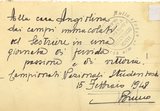 Alla cara Angiolina
dai campi immacolati
del Sestriere in una
giornata di
passione e di vittoria
Campionati Nazionali Studenteschi
15 Febbraio 1948